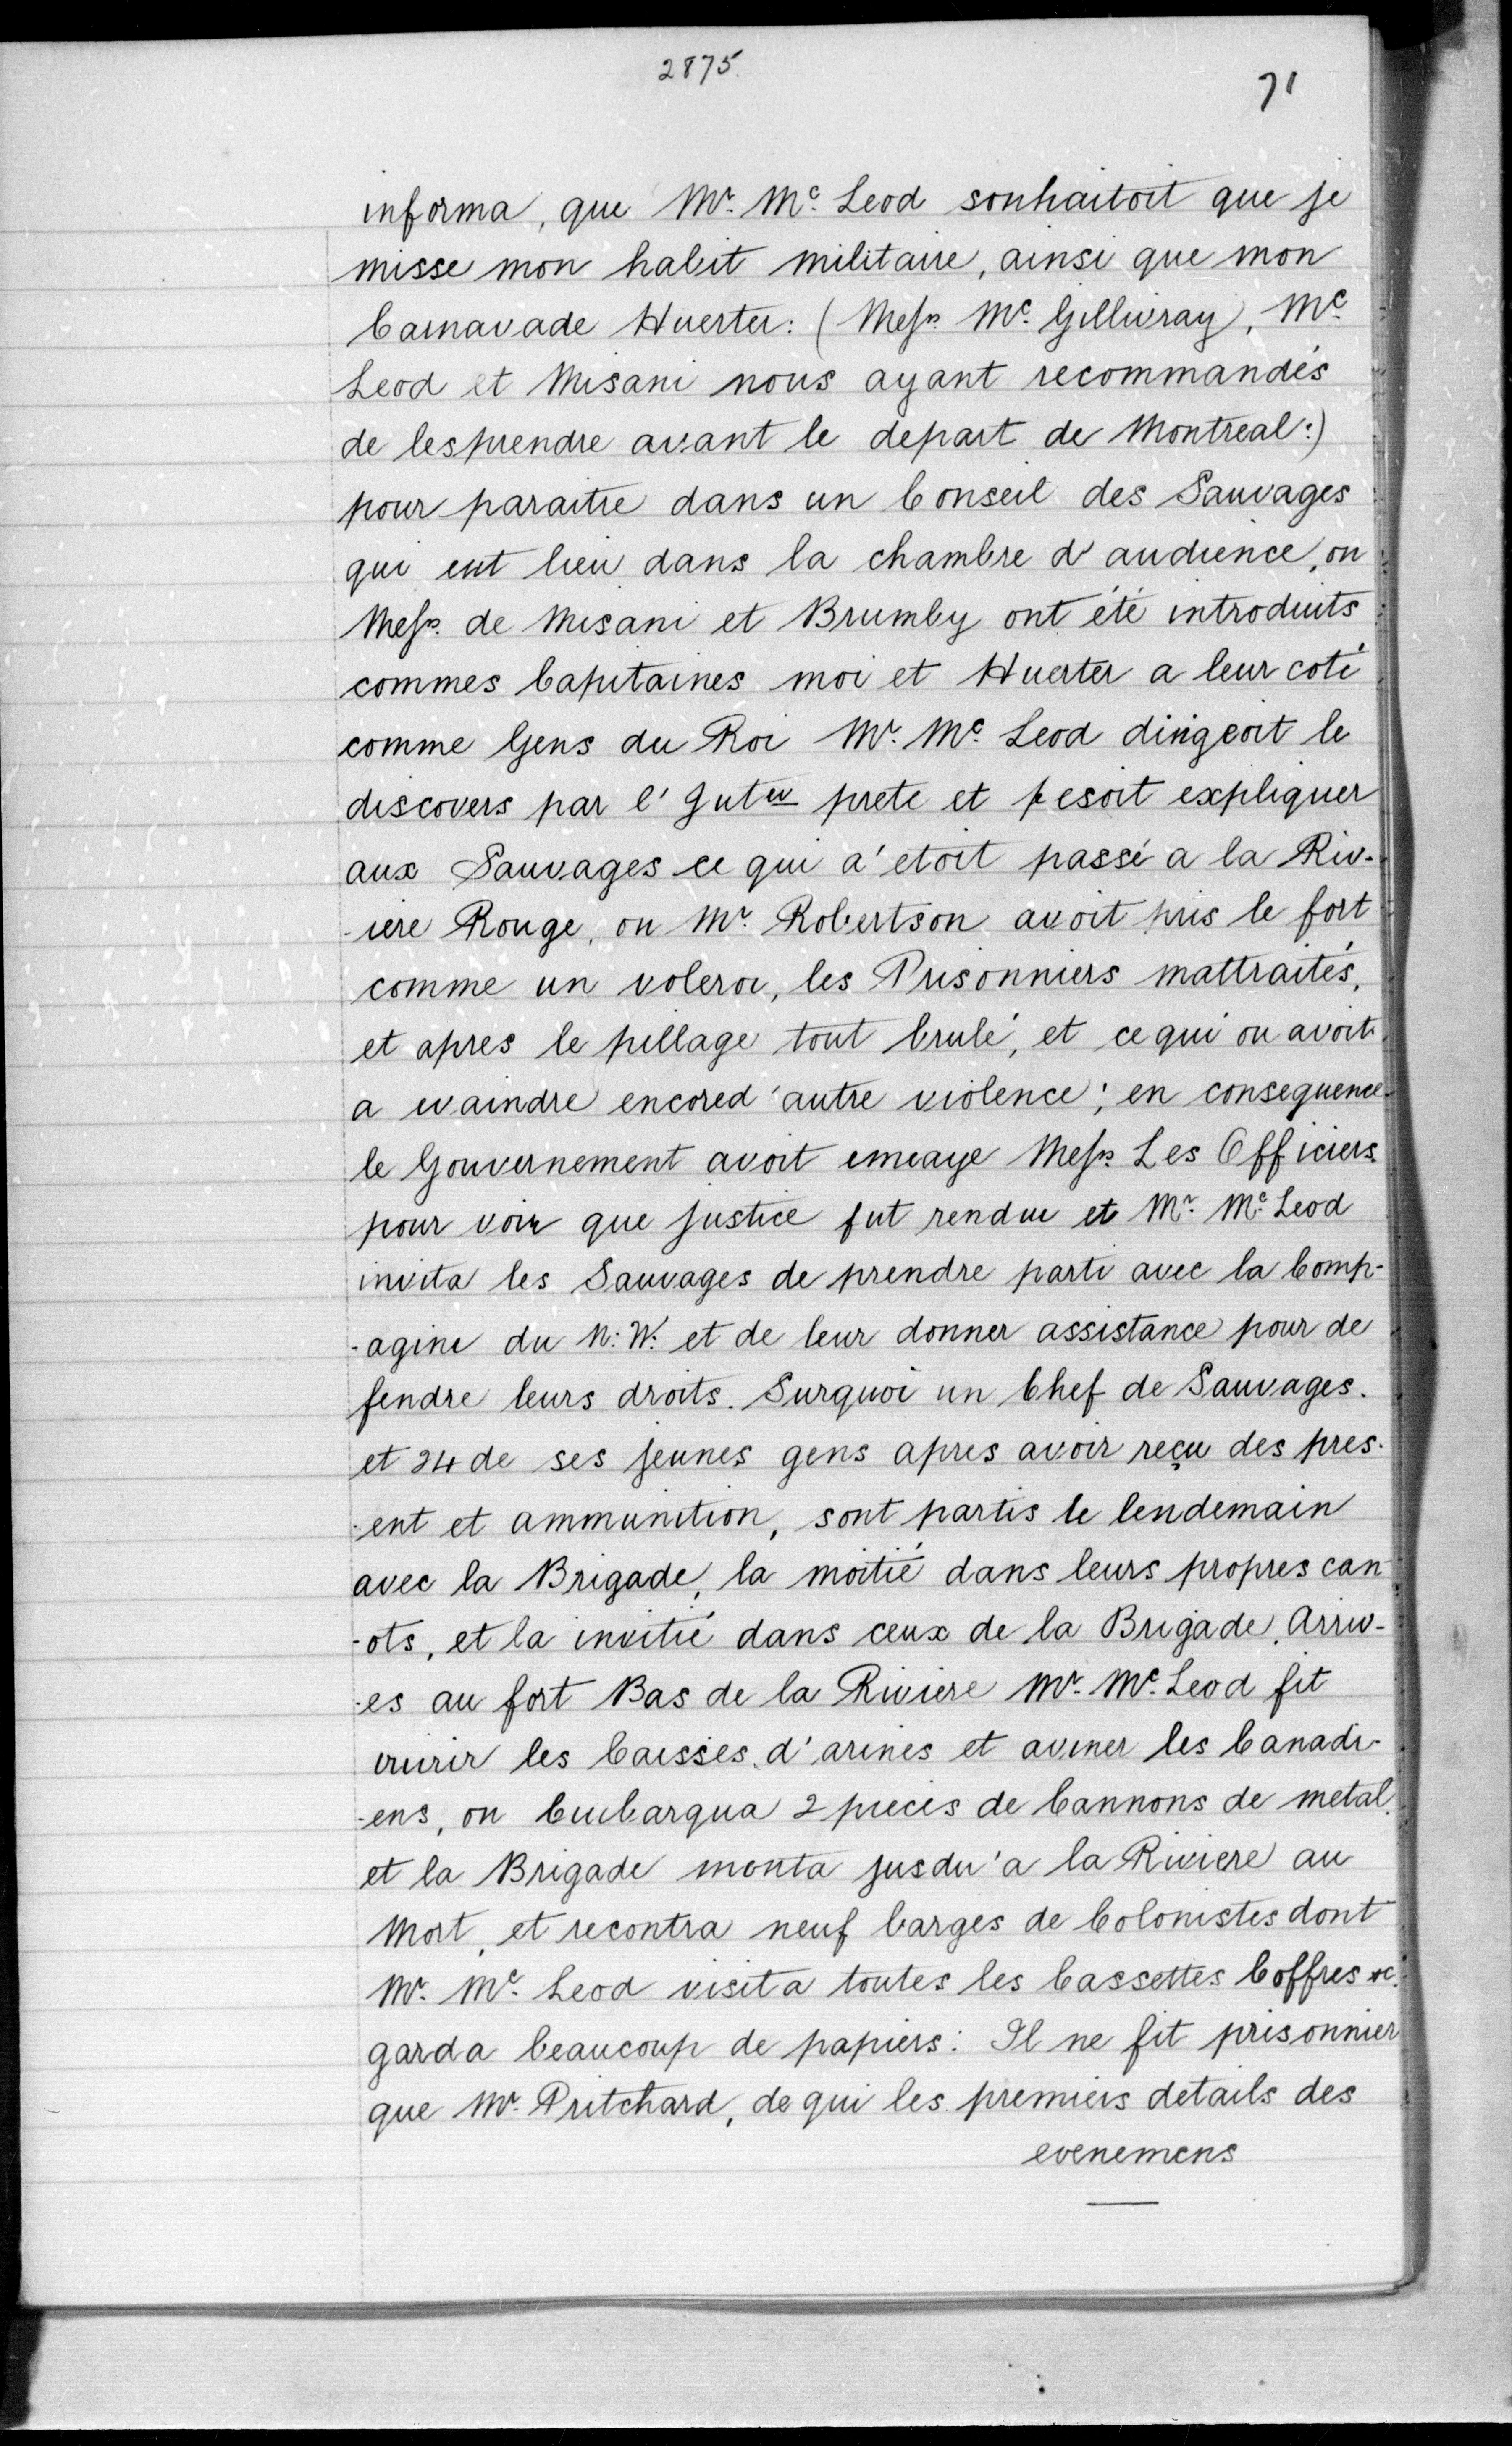 2875.
71
informa, que Mr. Mc. Leod sonhaitoit que je
misse mon habit militaire, ainsi que mon
Camavade Huerter: (Messrs. Mc. Gillivray, Mc.
Leod et Misani nous ayant recommandés
de les prendre avant le depart de Montreal:)
pour paraitre dans un Conseil des Sauvages
qui eut lieu dans la chambre d'audience, ou
Messrs. de Misani et Brumby ont été introduits
commes Capitaines moi et Huerter a leur coté
comme Gens du Roi Mr. Mc. Leod dirigeoit le
discovers par l'Juter prete et fesoit expliquer
aux Sauvages ce qui a'etoit passé a la Riv-
-iere Rouge, ou Mr. Robertson avoit pris le fort
comme un voleroi, les Prisonniers mattraités,
et apres le pillage tout brulé, et ce qui ou avoit
a evaindre encored'autre violence; en consequence
le Gouvernement avoit emeaye Messrs Les Officiers
pour voir que justice fut rendue et Mr. Mc. Leod
invita les Sauvages de prendre parti avec la Comp-
-agine du N:W. et de leur donner assistance pour de
fendre leurs droits. Surquoi un Chef de Sauvages.
et 24 de ses jeunes gens apres avoir reçu des pres-
-ent et ammunition, sont partis le lendemain
avec la Brigade, la moitié dans leurs propres can
-ots, et la invitié dans ceux de la Brigade. Arriv-
-es au fort Bas de la Riviere Mr. Mc. Leod fit
vuirir les Caisses d'arines et aviner les Canadi-
-ens, ou Cubarqua 2 pieces de Cannons de metal.
et la Brigade monta jusdu'a la Riviere au
Mort, et recontra neuf barges de Colonistes dont
Mr. Mc. Leod visita toutes les Cassettes Coffres &c.
garda beaucoup de papiers: Il ne fit prisonnier
que Mr. Pritchard, de qui les premiers details des
evenemens